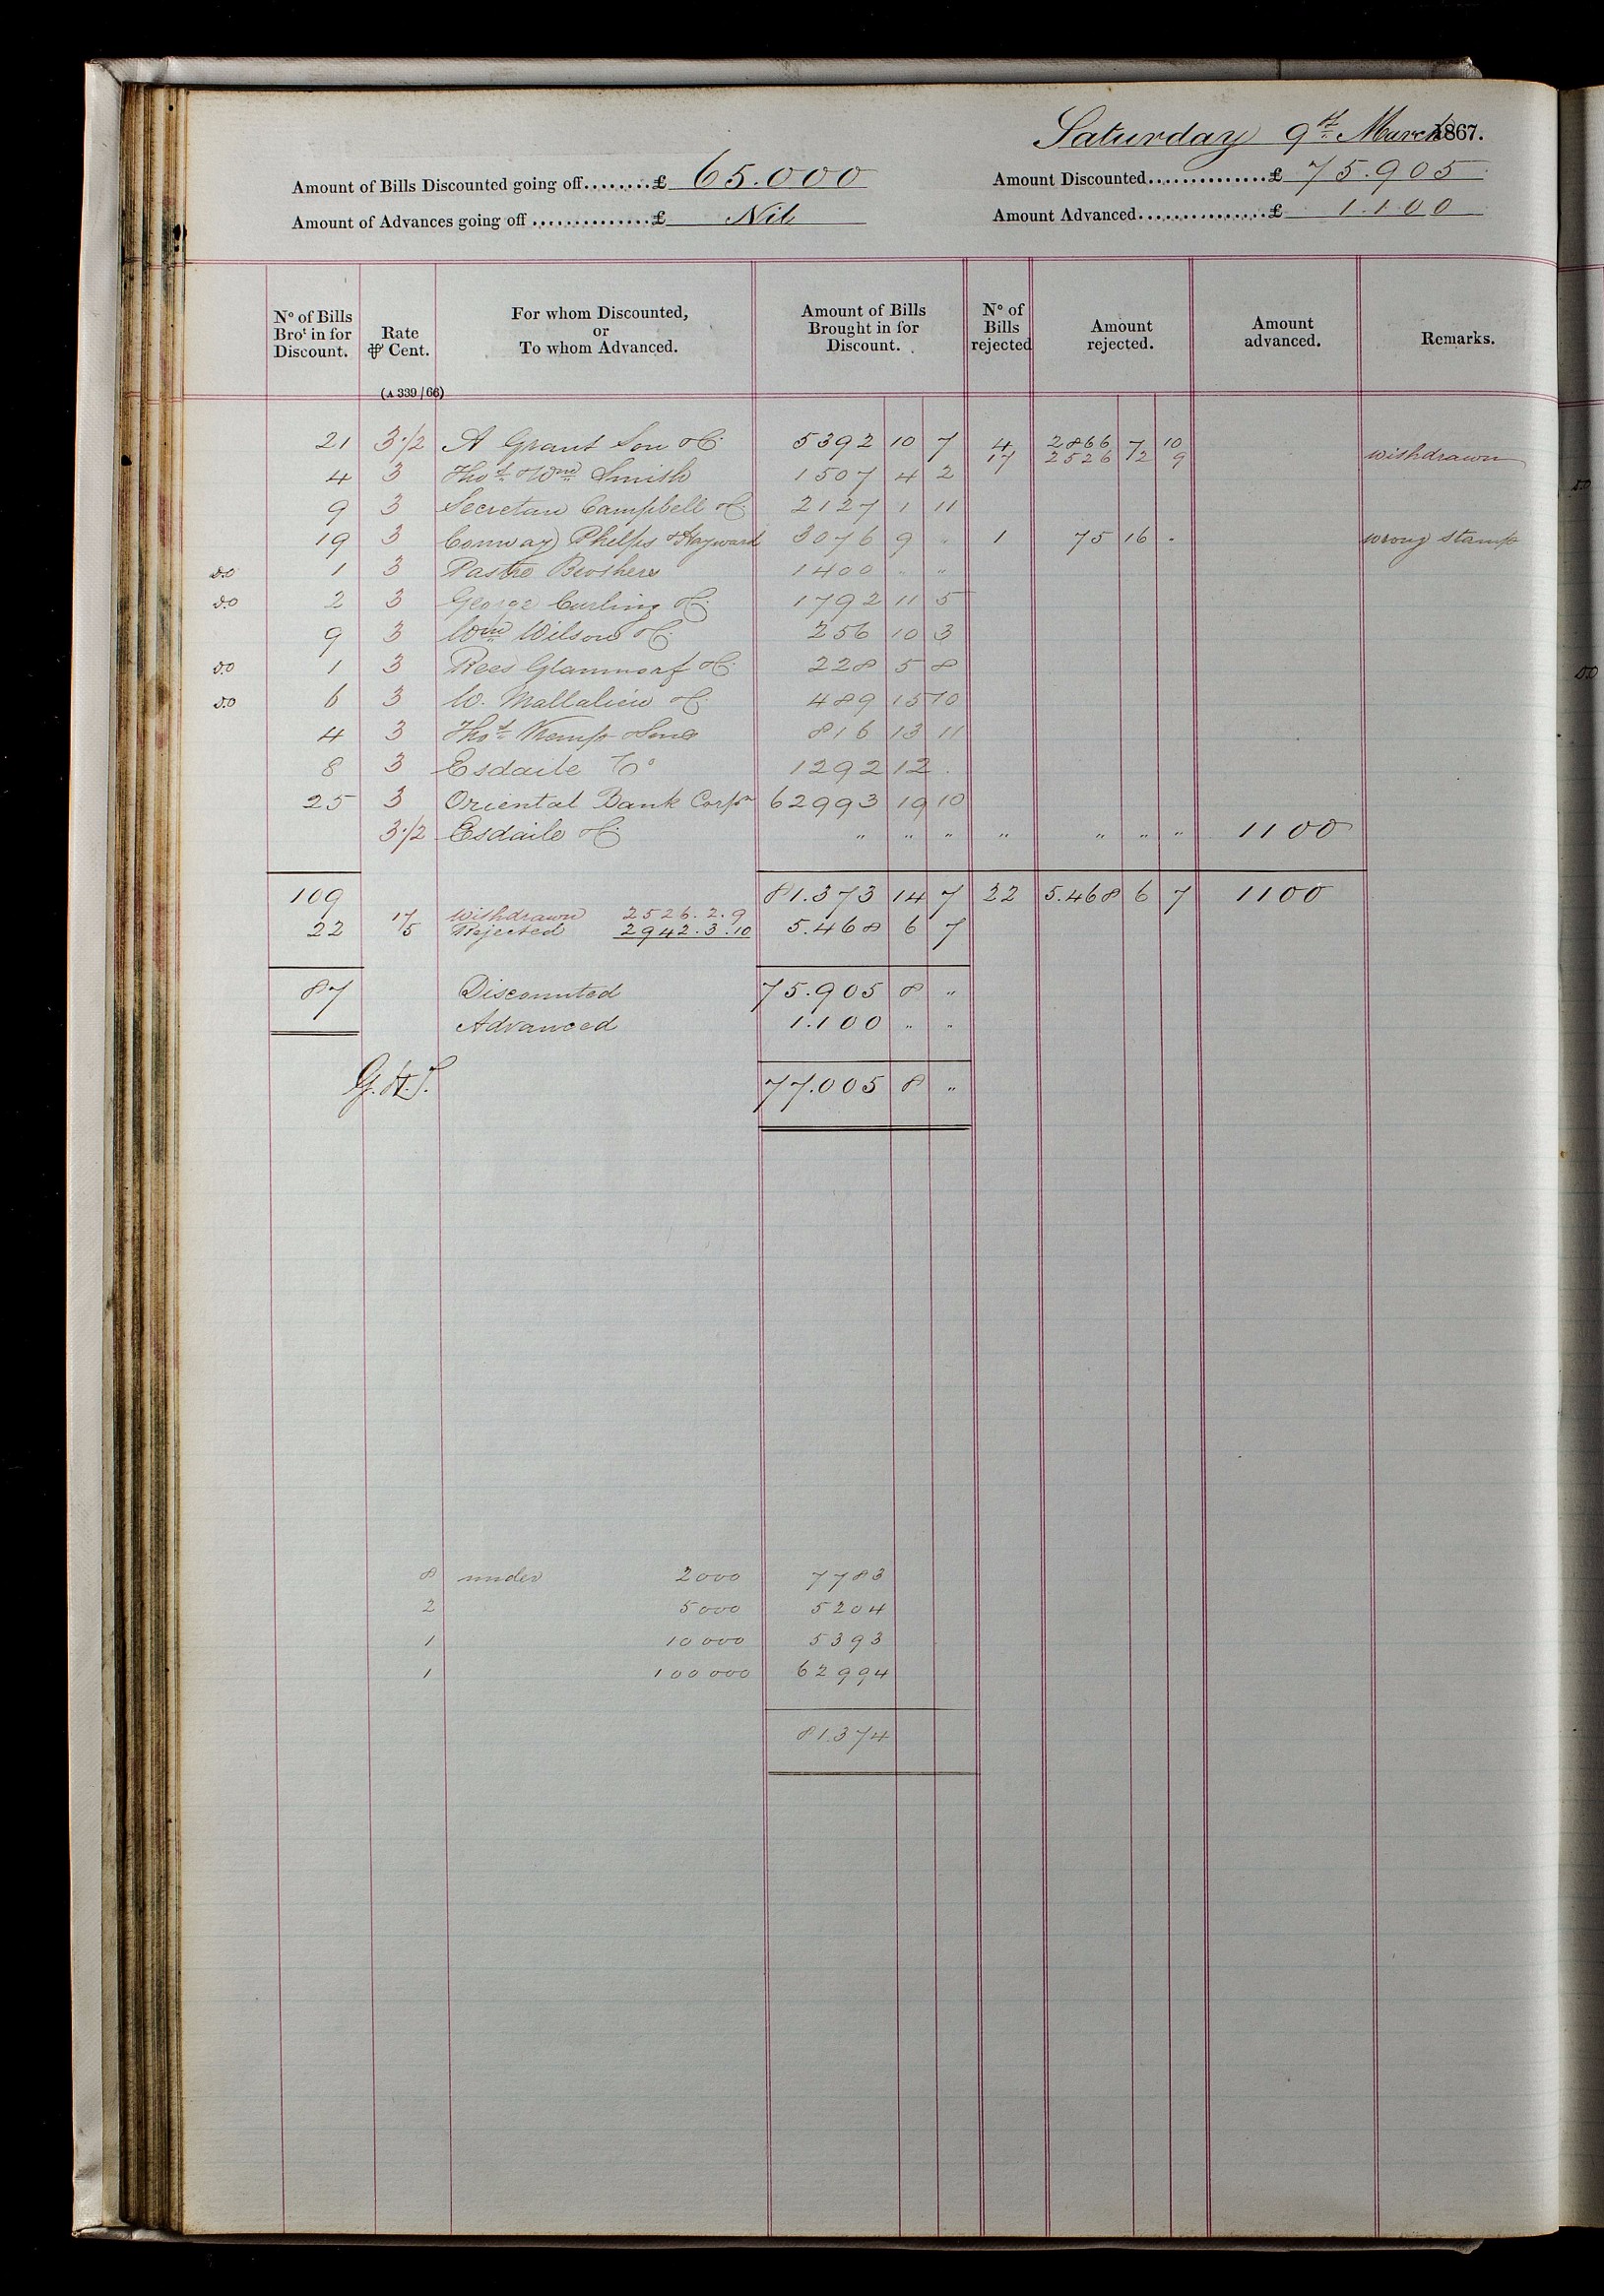 Saturday 9th March 1867.
Amount of Bills Discounted going off........£ 65.000 Amount Discounted..............£ 75.905
Amount of Advances going off..............£ Nil Amount Advanced...............£ 1.100
No of Bills Brot in for Discount. Rate ⅌ Cent. For whom Discounted, or To whom Advanced. Amount of Bills Brought in for Discount. No of Bills rejected Amount rejected. Amount advanced. Remarks.
(A 339/66)
21 3 1/2 A Grant Son & Co 5392 10 7 4 2866 7 10
17 2526 2 9 withdrawn
4 3 Thos & Wm Smith 1507 4 2
9 3 Secretan Campbell & Co 2127 1 11
19 3 Conway Phelps & Hayward 3076 9 " 1 75 16 - wrong stamp
do 1 3 Brothers 1400 " "
do 2 3 George Curling & Co 1792 11 5
9 3 Wm Wilson & Co 256 10 3
do 1 3 Rees & Co 228 5 8
do 6 3 W. Mallalieu & Co 489 15 10
4 3 Thos Kemp & Sons 816 13 11
8 3 Esdaile & Co 1292 12 .
25 3 Oriental Bank Corpn 62993 19 10
3 1/2 Esdaile & Co " " " " " " " 1100
109 81.373 14 7 22 5.468 6 7 1100
17 Withdrawn 2526.2.9
22 5 Rejected 2942.3.10 5.468 6 7
87 Discounted 75.905 8 "
Advanced 1.100 " "
G.H.S. 77.005 8 "
8 under 2000 7783
2 5000 5204
1 10000 5393
1 100000 62994
81.374